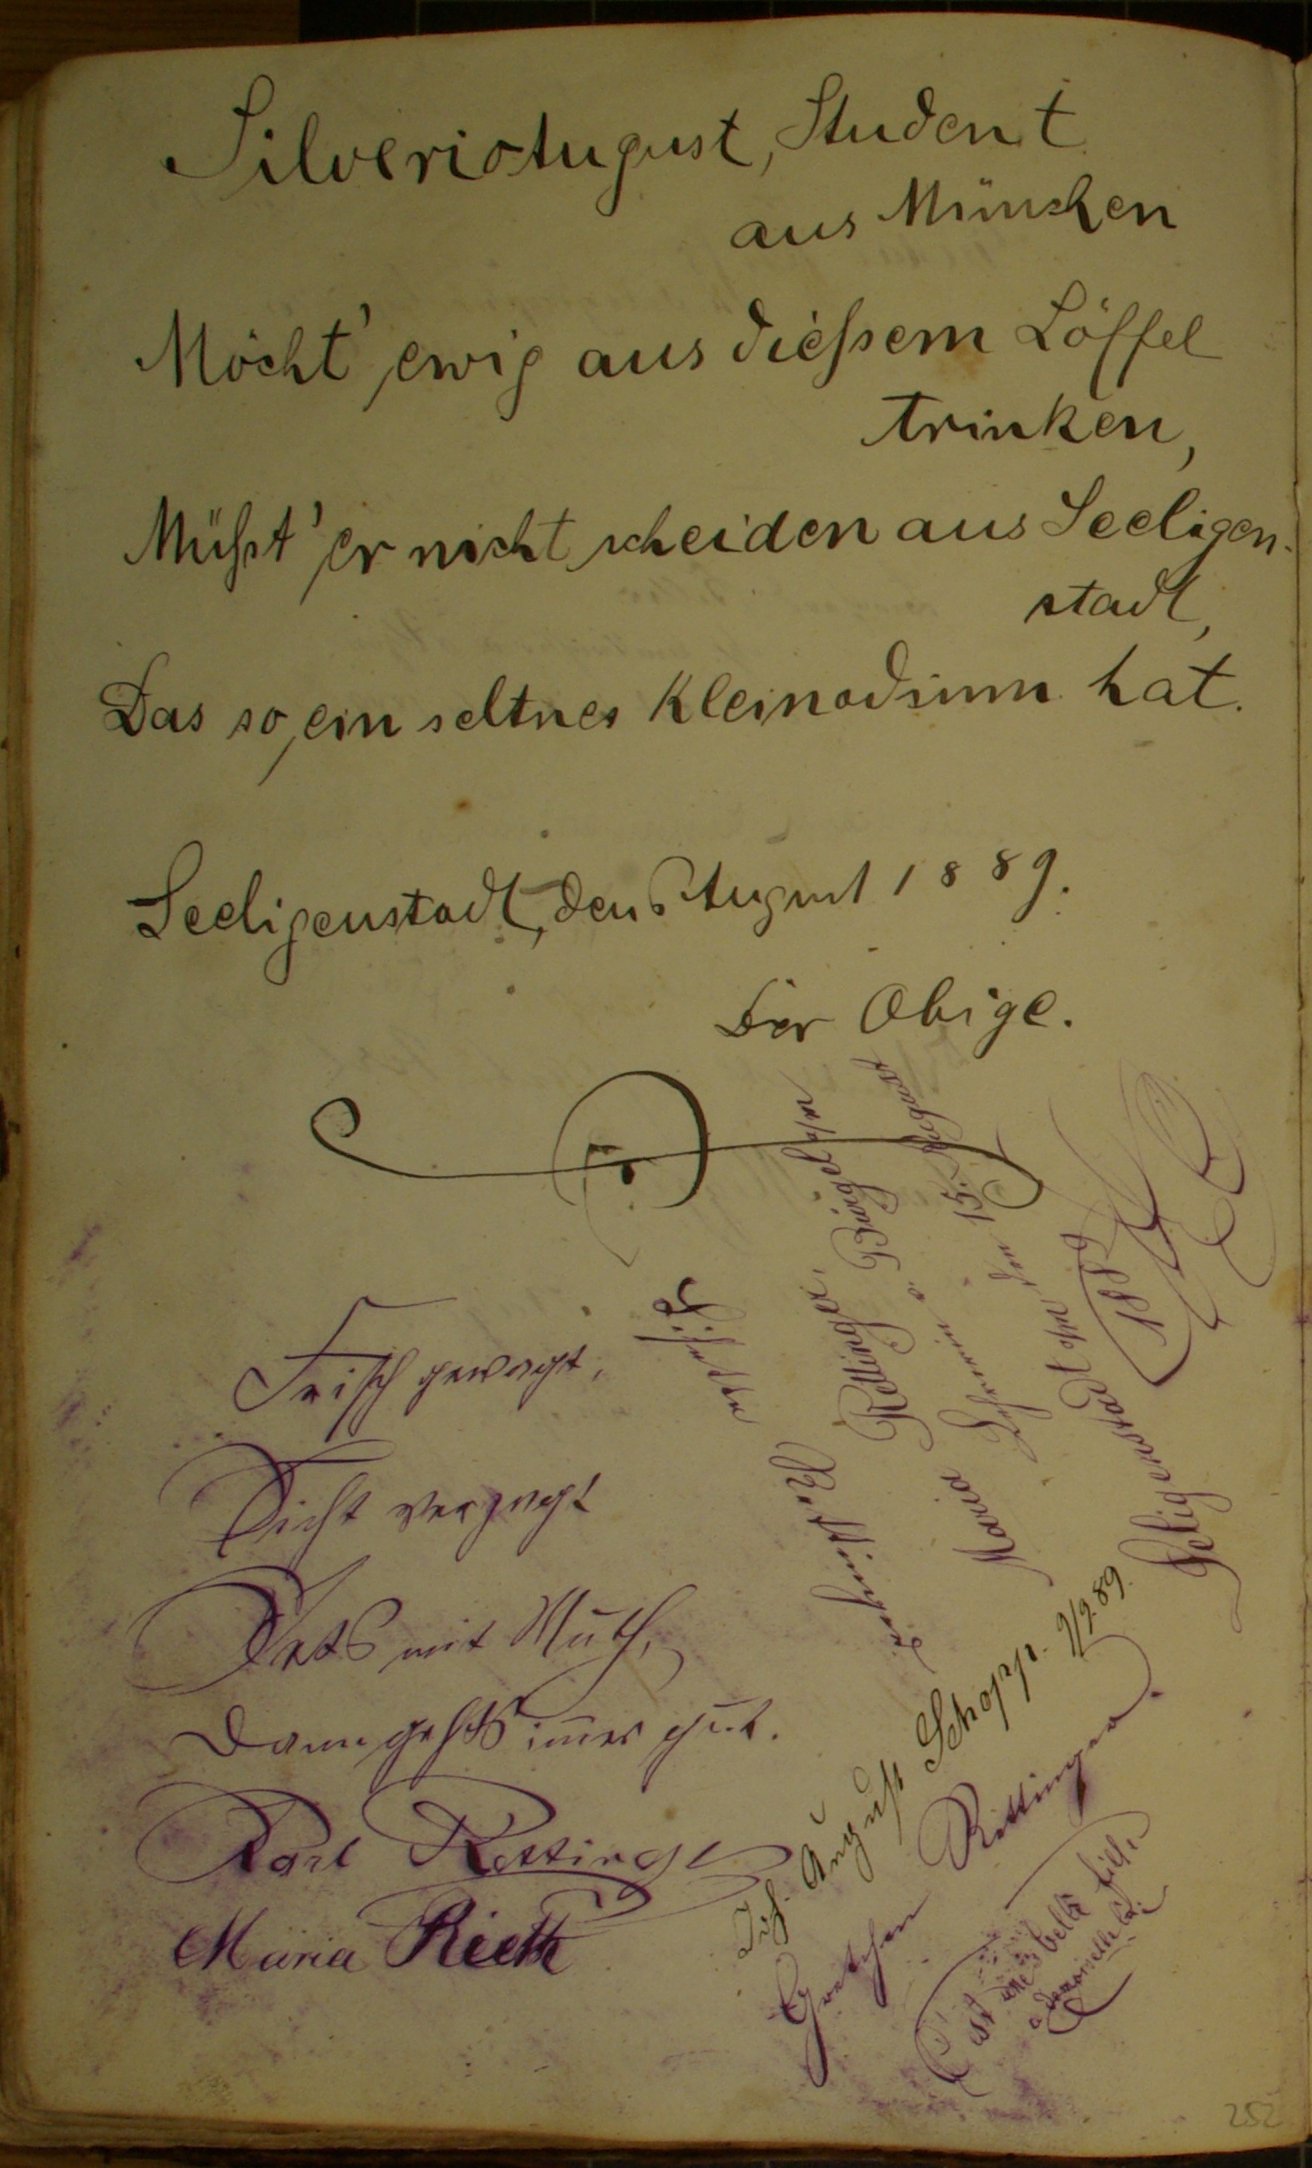 Silverio August, Student
aus München
Möcht' ewig aus dießem Löffel
trinken,
Müßt' er nicht scheiden aus Seeligen-
stadt,
Das so ein seltnes Kleinodium hat.
Seeligenstadt, den 6 August 1889.
Der Obige.
Frisch gewagt,
Nicht verzagt
Stets mit Muth,
Dann gehts im̅er gut.
Karl Rettinger
Maria Rieth
Maria Kellinger,
Lehrerin a. Bingen a/m
Seligenstadt a/m den 15. August
1889
Joh. August Schopp. 2/9 89.
Gretchen Rettinger.
C'est une belle fille,